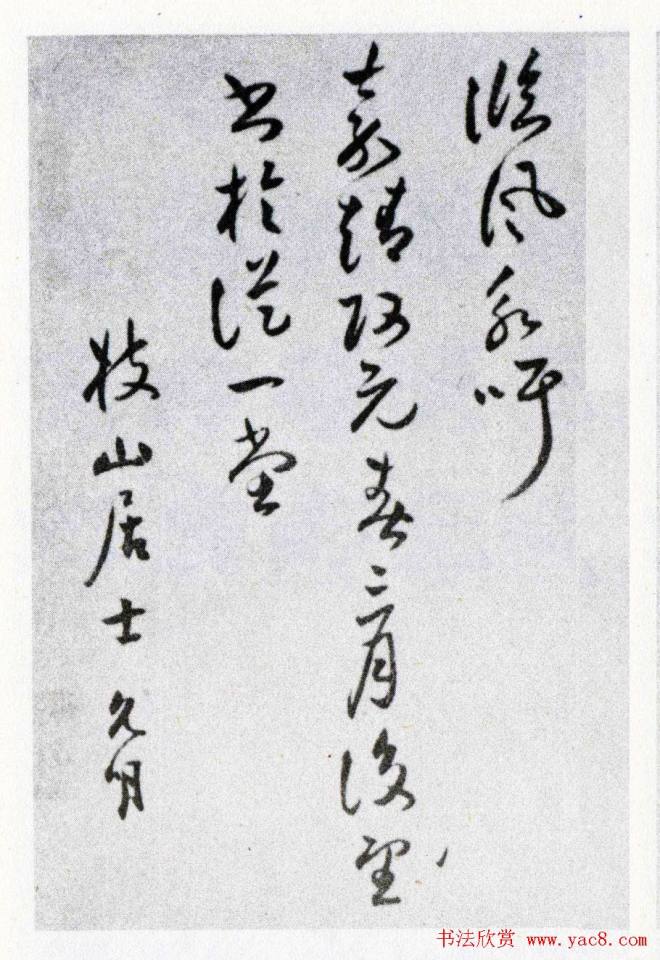 臨風永吁
嘉靖改元春三月後望
書於從一堂
枝山居士 允明
书法欣赏 www.yac8.com